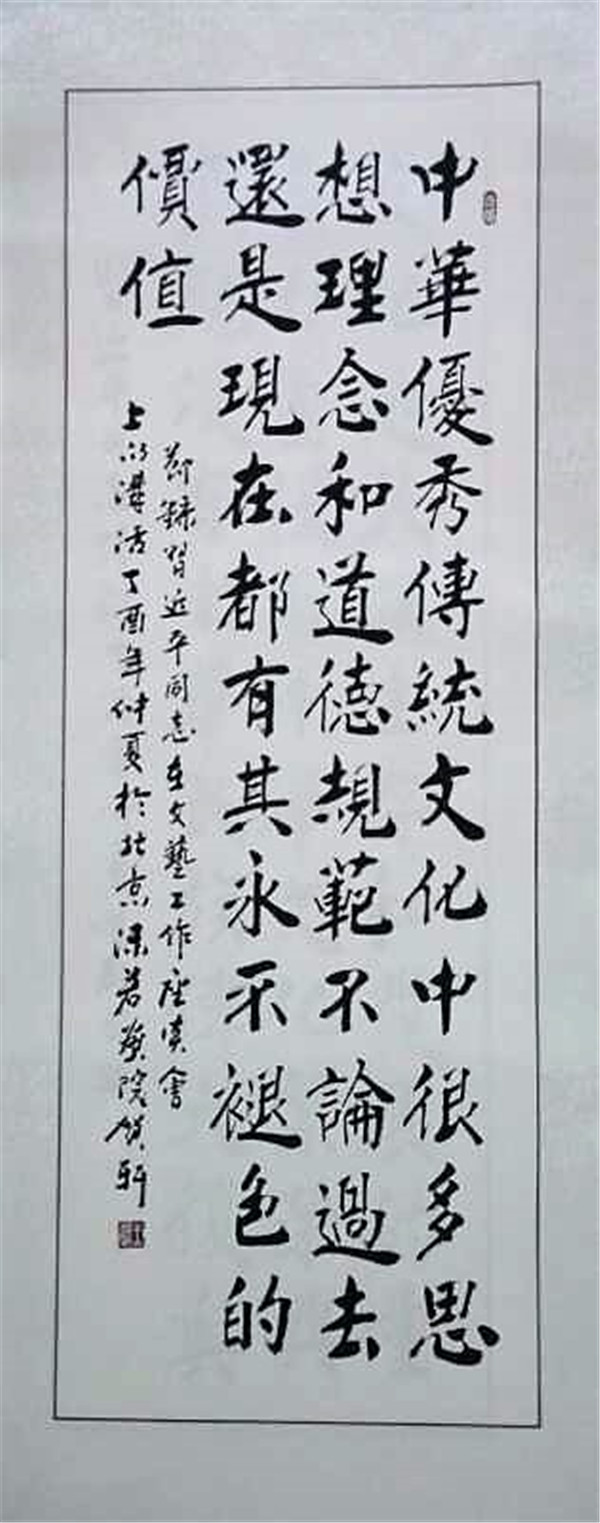 中華優秀傳統文化中很多思
想理念和道德規範不論過去
還是現在都有其永不褪色的
價值
節錄習近平同志在文藝工作座談會
上的講話丁酉年仲夏於北京深若藝院